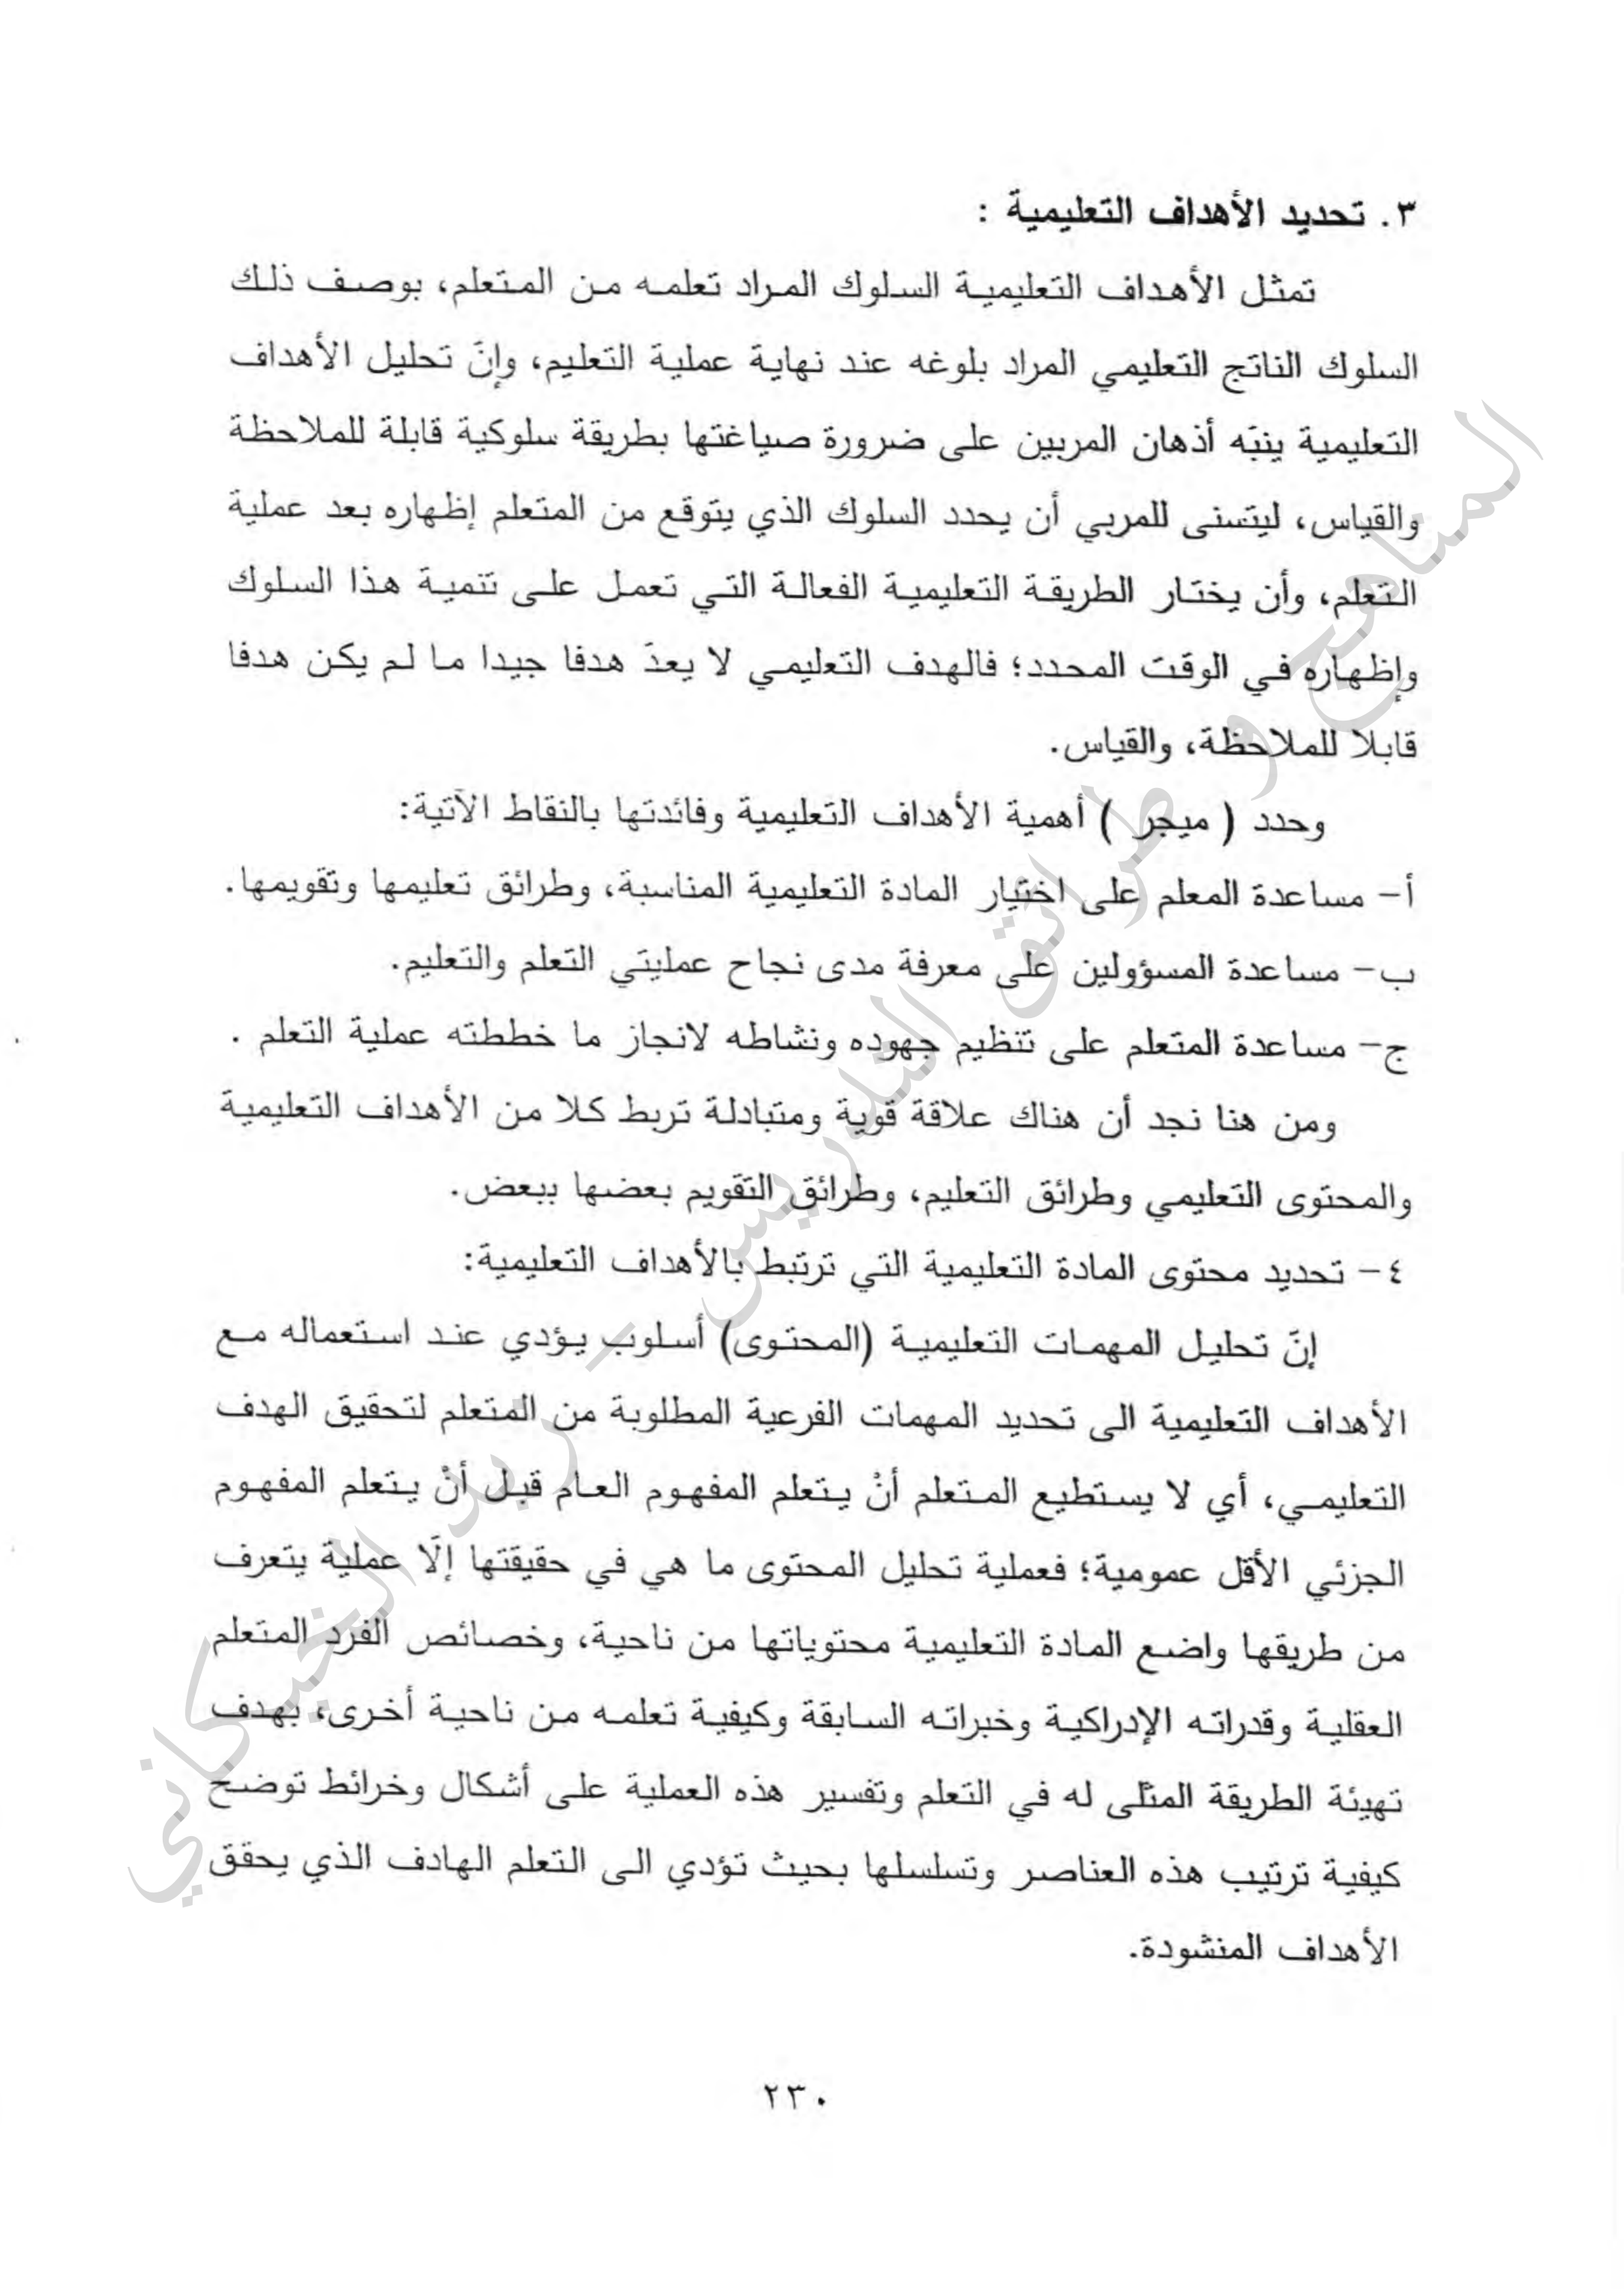 ٣. تحديد الأهداف التعليمية :
تمثل الأهداف التعليمية السلوك المراد تعلمه من المتعلم، بوصف ذلك
السلوك الناتج التعليمي المراد بلوغه عند نهاية عملية التعليم، وإنّ تحليل الأهداف
التعليمية ينبّه أذهان المربين على ضرورة صياغتها بطريقة سلوكية قابلة للملاحظة
والقياس، ليتسنى للمربي أن يحدد السلوك الذي يتوقع من المتعلم إظهاره بعد عملية
التعلم، وأن يختار الطريقة التعليمية الفعالة التي تعمل على تنمية هذا السلوك
وإظهاره في الوقت المحدد؛ فالهدف التعليمي لا يعدّ هدفا جيدا ما لم يكن هدفا
قابلا للملاحظة، والقياس.
وحدد ( ميجر ) أهمية الأهداف التعليمية وفائدتها بالنقاط الآتية:
أ- مساعدة المعلم على اختيار المادة التعليمية المناسبة، وطرائق تعليمها وتقويمها.
ب- مساعدة المسؤولين على معرفة مدى نجاح عمليتي التعلم والتعليم.
ج- مساعدة المتعلم على تنظيم جهوده ونشاطه لانجاز ما خططته عملية التعلم .
ومن هنا نجد أن هناك علاقة قوية ومتبادلة تربط كلا من الأهداف التعليمية
والمحتوى التعليمي وطرائق التعليم، وطرائق التقويم بعضها ببعض.
٤- تحديد محتوى المادة التعليمية التي ترتبط بالأهداف التعليمية:
إنّ تحليل المهمات التعليمية (المحتوى) أسلوب يؤدي عند استعماله مع
الأهداف التعليمية الى تحديد المهمات الفرعية المطلوبة من المتعلم لتحقيق الهدف
التعليمي، أي لا يستطيع المتعلم أنْ يتعلم المفهوم العام قبل أنْ يتعلم المفهوم
الجزئي الأقل عمومية؛ فعملية تحليل المحتوى ما هي في حقيقتها إلّا عملية يتعرف
من طريقها واضع المادة التعليمية محتوياتها من ناحية، وخصائص الفرد المتعلم
العقلية وقدراته الإدراكية وخبراته السابقة وكيفية تعلمه من ناحية أخرى، بهدف
تهيئة الطريقة المثلى له في التعلم وتفسير هذه العملية على أشكال وخرائط توضح
كيفية ترتيب هذه العناصر وتسلسلها بحيث تؤدي الى التعلم الهادف الذي يحقق
الأهداف المنشودة.
٢٣٠
المناهج و طرائق التدريس - زيد الخيكاني